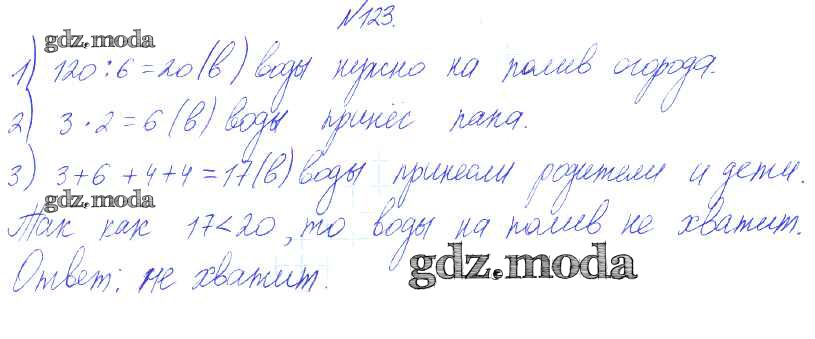 №123.
gdz.moda
1) 120:6=20(в) воды нужно на полив огорода.
2) 3·2=6(в) воды принёс папа.
3) 3+6+4+4=17(в) воды принесли родители и дети.
gdz.moda
Так как 17<20, то воды на полив не хватит.
gdz.moda
Ответ: не хватит.